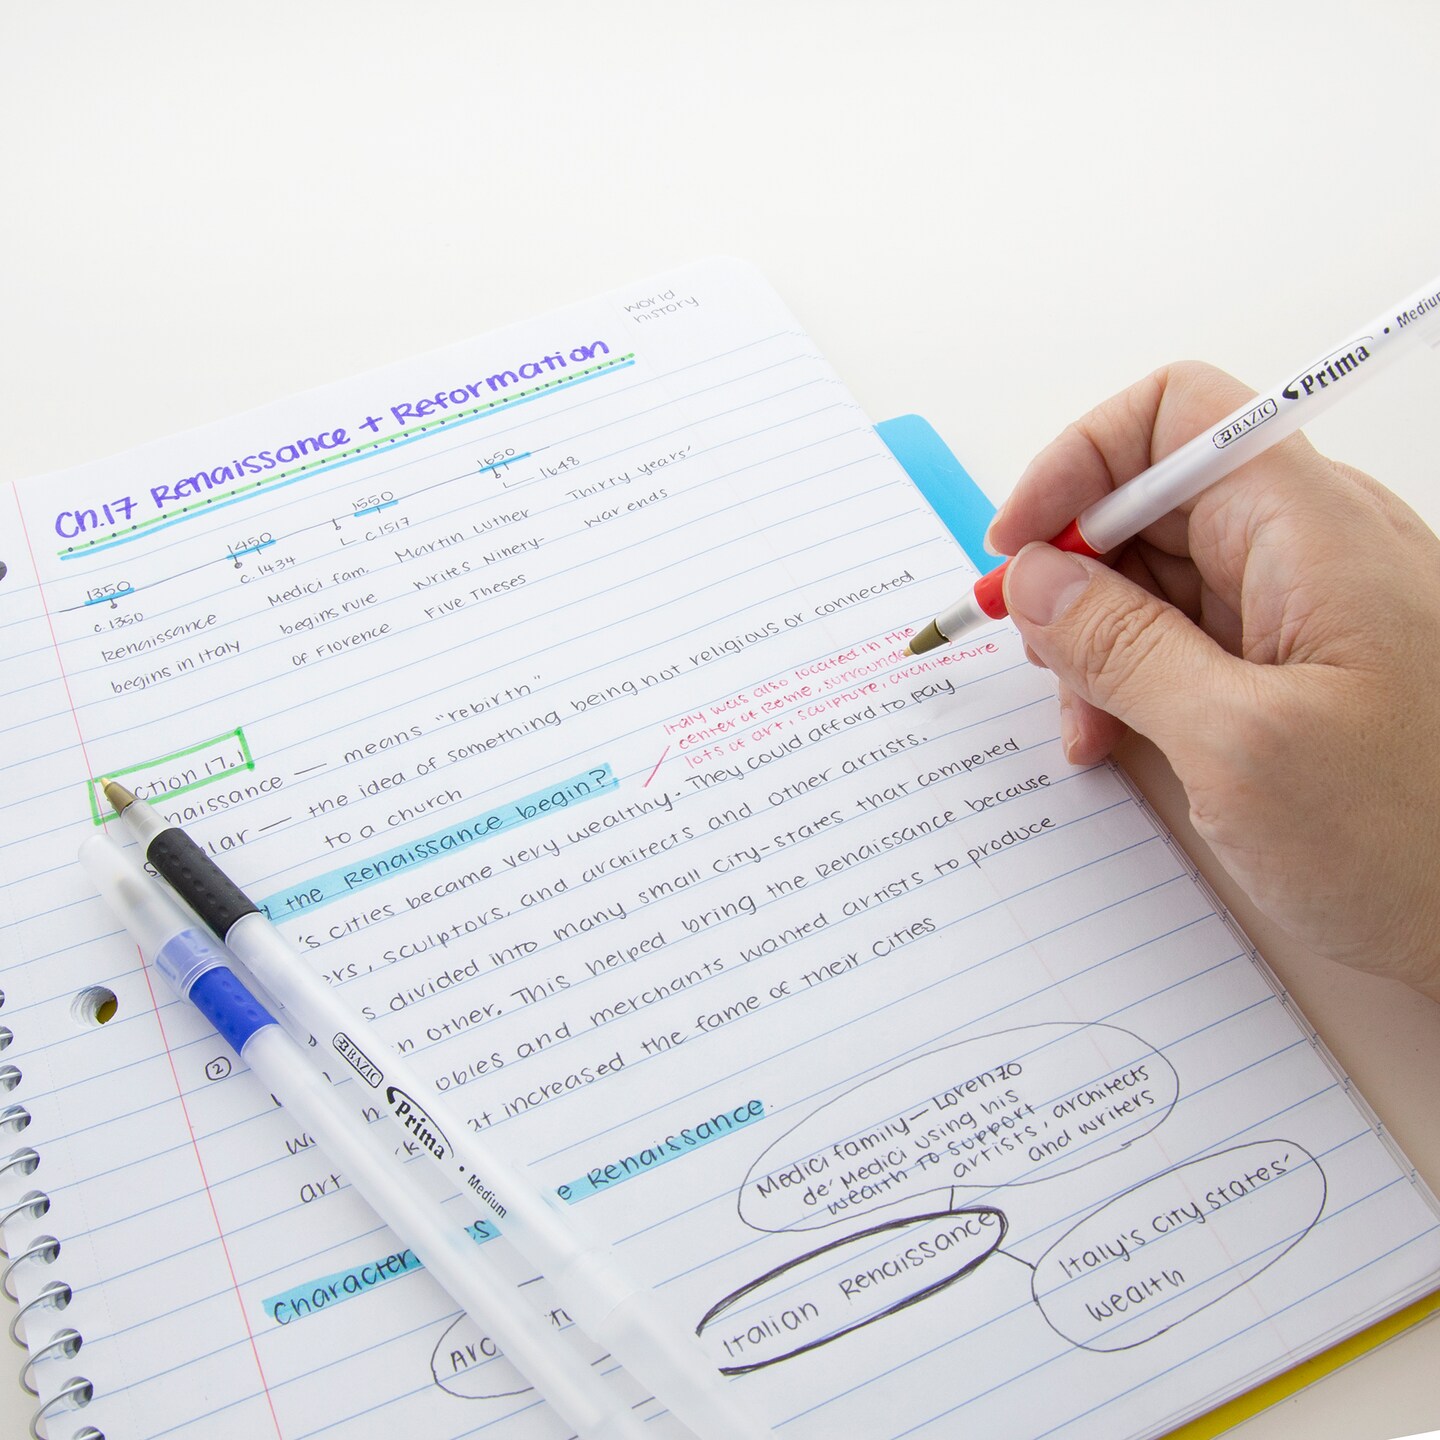 world
history
Ch.17 Renaissance + Reformation
1350
1450
1550
1650
c.1350
Renaissance
begins in Italy
c. 1434
Medici fam.
begins rule
of Florence
c.1517
Martin Luther
writes Ninety-
Five Theses
1648
Thirty years'
war ends
ction 17.1
naissance — means "rebirth"
lar — the idea of something being not religious or connected
to a church
the Renaissance begin?
Italy was also located in the
center of Rome, surrounde
lots of art, sculpture, architecture
's cities became very wealthy. They could afford to pay
ers, sculptors, and architects and other artists.
s divided into many small city-states that competed
n other. This helped bring the Renaissance because
②
obles and merchants wanted artists to produce
at increased the fame of their cities
art
e Renaissance.
Character
Arc
Medici family — Lorenzo
de' Medici using his
wealth to support
artists, architects
and writers
Italian Renaissance
Italy's city states'
wealth
BAZIC Prima • Medium
BAZIC Prima • Medium